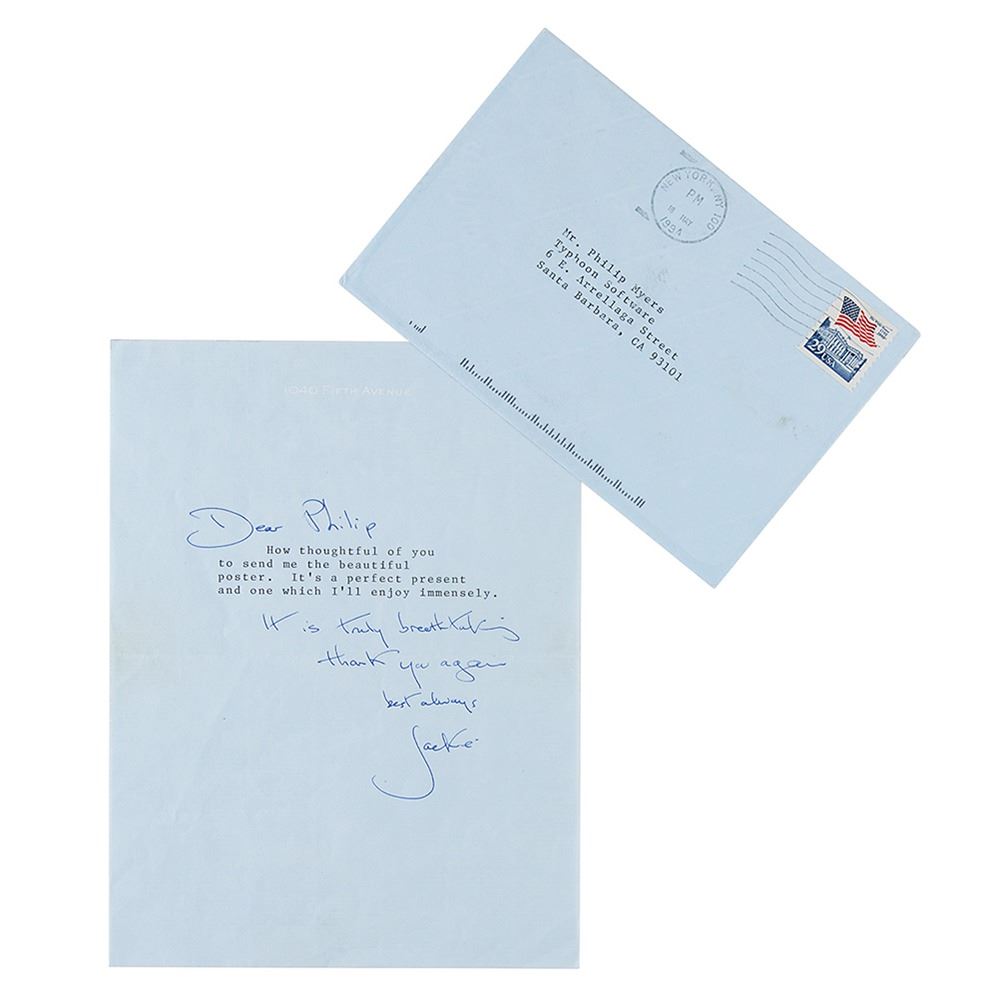 NEW YORK, NY 100
PM
18 MAY
1994
Mr. Philip Myers
Typhoon Software
6 E. Arrellaga Street
Santa Barbara, CA 93101
29 USA
1040 FIFTH AVENUE
Dear Philip
How thoughtful of you
to send me the beautiful
poster. It's a perfect present
and one which I'll enjoy immensely.
It is truly breathtaking
thank you again
best always
Jackie